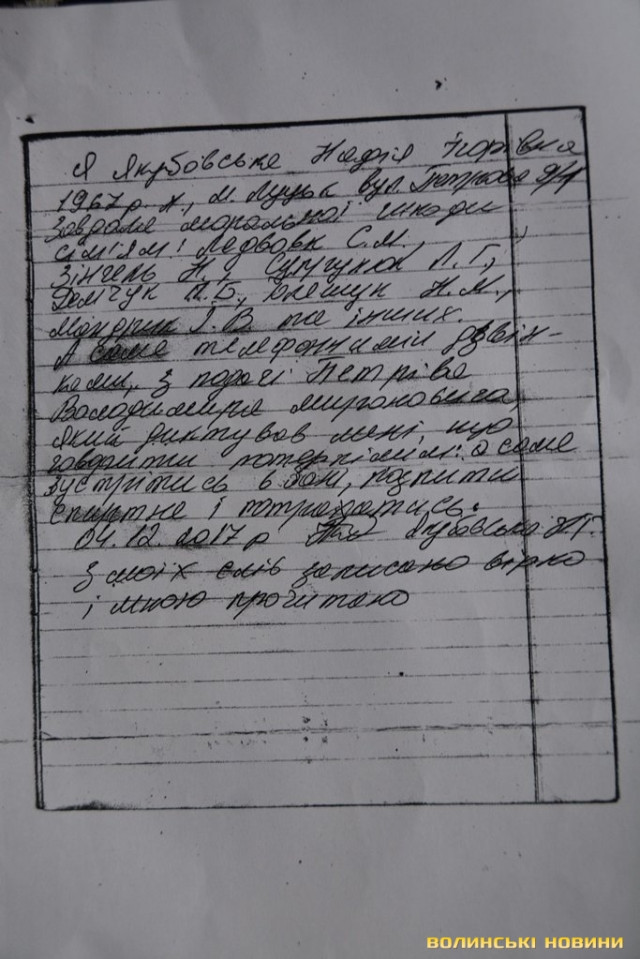 Я Якубовська Надія Ігорівна
1967 р. н., м. Луцьк вул.
завдала моральної шкоди
сім'ям: Ледвовк С.М.,
Зінгель Н., Л.Г.,
П.Б., Н.М.,
Мандрик І.В. та інших.
А саме телефонними дзвін-
ками, з подачі Петріва
Володимира Мироновича,
який диктував мені, що
говорити потерпілим: а саме
зустрітись в бані, попити
спиртне і потрахатись.
04.12.2017 р Якубовська Н.І.
З моїх слів записано вірно
і мною прочитано
ВОЛИНСЬКІ НОВИНИ